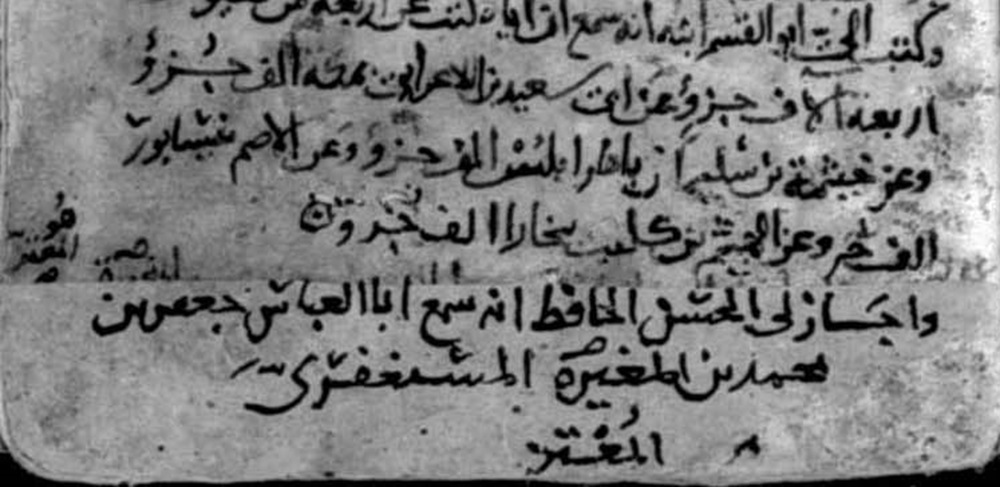 وكتب الى ابو القسم ابنه انه سمع ان اباه كتب عن اربعة
اربعة الاف جزؤ وعن ابن سعيد بن الاعرابى بمكة الف جزؤ
وعن خيثمة بن سليمان باطرابلس الف جزؤ وعن الاصم بنيسابور
الف جزؤ وعن الهيثم بن كليب ببخارا الف جزؤ
هو
المعتز
واجاز لى الحسن الحافظ انه سمع ابا العباس جعفر بن
محمد بن المغيرة المستغفرى
المعتز